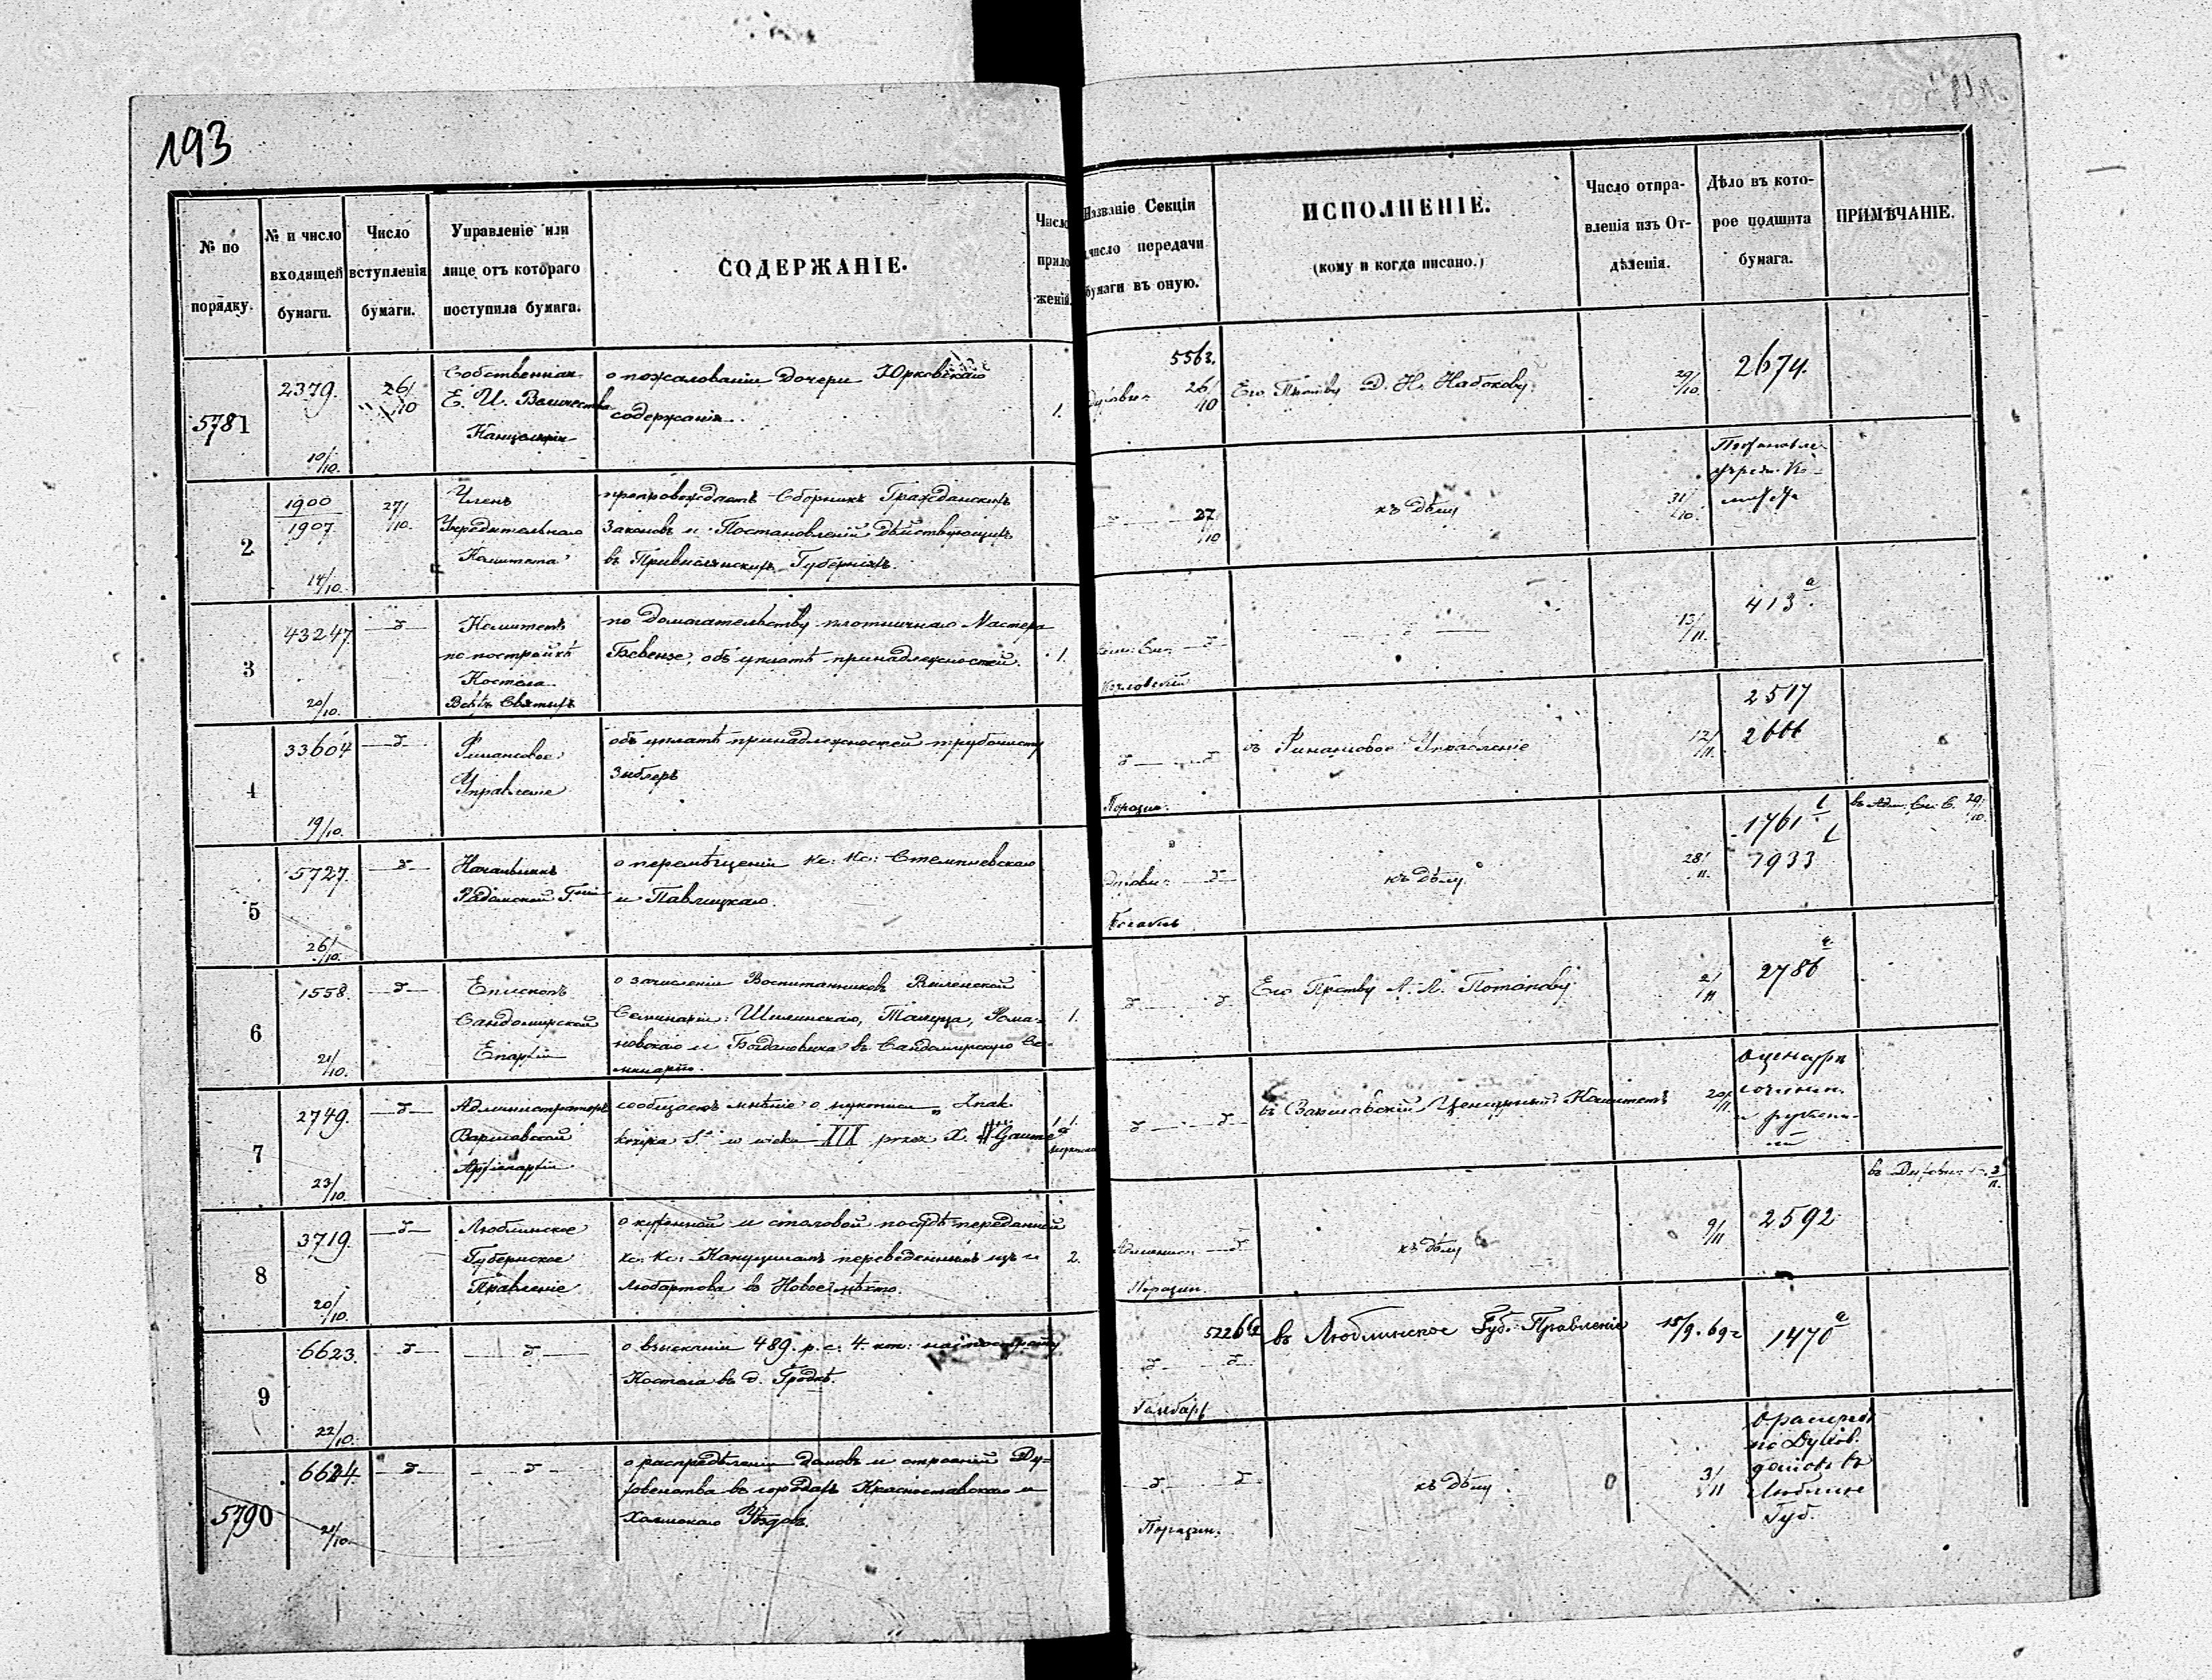 193
№ по порядку.
№ и число входящей бумаги.
Число вступленія бумаги.
Управленіе или лице отъ котораго поступила бумага.
СОДЕРЖАНІЕ.
Число приложеній.
Названіе Секціи число передачи бумаги въ оную.
ИСПОЛНЕНІЕ.
(кому и когда писано.)
Число отпра-
вленія изъ От-
дѣленія.
Дѣло въ кото-
рое подшита
бумага.
ПРИМѢЧАНІЕ.
5781
2379.
10/10.
26/10
Собственная
Е. И. Величества
Канцелярія
о пожалованіи дочери Юрковскаго
содержанія.
1.
5563.
26/10
Его Прству Д. Н. Набокову
29/10
2674.
2
1900
1907
14/10.
27/10.
Членъ
Учредительнаго
Комитета
препровождаетъ Сборникъ Гражданскихъ
Законовъ и Постановленій дѣйствующихъ
въ Привислянскихъ Губерніяхъ.
27/10
къ дѣлу
31/10.
3
43247.
20/10.
Комитетъ
по постройкѣ
Костела
Всѣхъ Святыхъ
по домогательству плотничнаго Мастера
объ уплатѣ принадлежностей.
1.
13/11.
413 а.
4
33604
19/10.
Финансовое
Управленіе
объ уплатѣ принадлежностей
въ Финансовое Управленіе
12/11.
2517
2666
5
5727.
26/10.
Начальникъ
Радомской Губ-іи
о перемѣщеніи Кс: Кс: Стемпневскаго
и Павлицкаго.
къ дѣлу
28/11.
1761
7933
29/10.
6
1558.
21/10.
Епископъ
Сандомирской
Епархіи
о зачисленіи Воспитанниковъ Виленской
Семинаріи: Шилинскаго, Рома-
новскаго и Богдановича въ Сандомирскую Се-
минарію.
1.
Его Прству А. Л. Потапову
2/11
2786
7
2749.
23/10.
Администраторъ
Варшавской
Архіепархіи
сообщаетъ мнѣніе о рукописи „Znak
krzyża S. w wieku XIX przez X.
въ Варшавскій Ценсурный Комитетъ
20/11.
о ценсурѣ
сочинен.
8
3719.
20/10.
Люблинское
Губернское
Правленіе
о кухонной и столовой посудѣ переданной
Кс: Кс: Капуцинамъ переведеннымъ изъ г.
Любартова въ Новое мѣсто.
2.
къ дѣлу
9/11
2592
9
6623.
22/10.
о взысканіи 489. р. с: 4. коп: на постройку
Костела въ д. Гродкѣ.
въ Люблинское Губ: Правленіе
15/9. 69 г
1470 а
5790
6624.
21/10.
о распредѣленіи домовъ и строеній Ду-
ховенства въ городахъ Красноставскаго и
Холмскаго Уѣздовъ.
Порадин.
къ дѣлу
3/11
по Духов.
Люблинс
Губ.